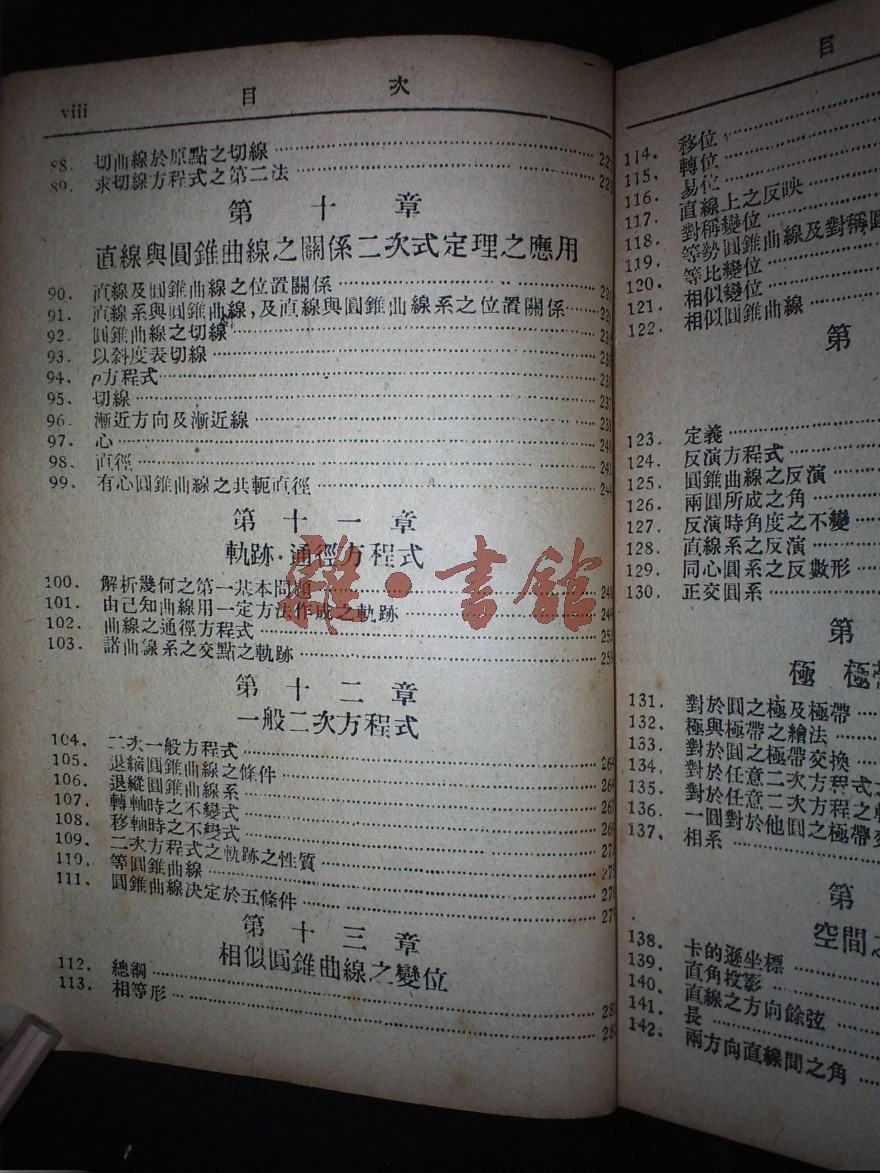 viii 目 次
88. 切曲線於原點之切線
89. 求切線方程式之第二法
第 十 章
直線與圓錐曲線之關係二次式定理之應用
90. 直線及圓錐曲線之位置關係
91. 直線系與圓錐曲線,及直線與圓錐曲線系之位置關係
92. 圓錐曲線之切線
93. 以斜度表切線
94. ρ方程式
95. 切線 237
96. 漸近方向及漸近線 238
97. 心 240
98. 直徑 241
99. 有心圓錐曲線之共軛直徑 244
第 十 一 章
軌跡·通徑方程式
100. 解析幾何之第一基本問題
101. 由己知曲線用一定方法作成之軌跡
102. 曲線之通徑方程式
103. 諸曲線系之交點之軌跡
第 十 二 章
一般二次方程式
104. 二次一般方程式 264
105. 退縮圓錐曲線之條件 264
106. 退縱圓錐曲線系
107. 轉軸時之不變式
108. 移軸時之不變式
109. 二次方程式之軌跡之性質
110. 等圓錐曲線
111. 圓錐曲線決定於五條件
第 十 三 章
相似圓錐曲線之變位
112. 總綱
113. 相等形
雜·書館
目
114. 移位
115. 轉位
116. 易位
117. 直線上之反映
118. 對稱變位
119. 等勢圓錐曲線及對稱圓
120. 等比變位
121. 相似變位
122. 相似圓錐曲線
第
123. 定義
124. 反演方程式
125. 圓錐曲線之反演
126. 兩圓所成之角
127. 反演時角度之不變
128. 直線系之反演
129. 同心圓系之反數形
130. 正交圓系
第
極 極帶
131. 對於圓之極及極帶
132. 極與極帶之繪法
133. 對於圓之極帶交換
134. 對於任意二次方程式之
135. 對於任意二次方程之
136. 一圓對於他圓之極帶
137. 相系
第
空間之
138. 卡的遜坐標
139. 直角投影
140. 直線之方向餘弦
141. 長
142. 兩方向直線間之角